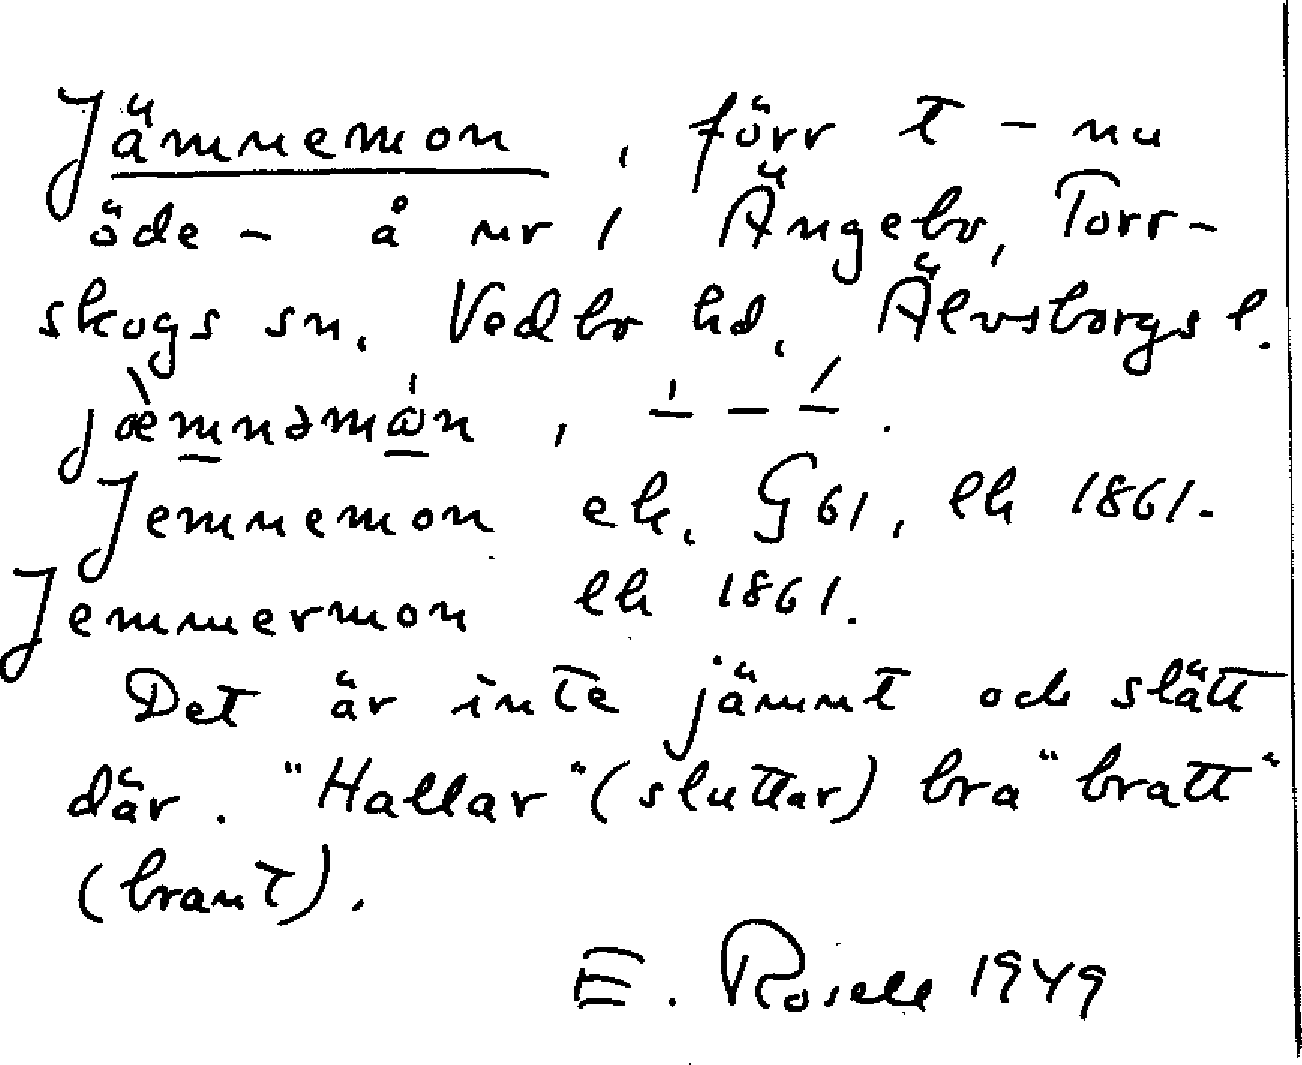 Jämnemon, förr t – nu
öde – å nr 1 Ängebo, Torr-
skogs sn, Vedbo hd, Älvsborgs l.
jæ̀mnəmὼn, –́ – –́.
Jemnemon ek, G 61, lh 1861.
Jemmermon lh 1861.
Det är inte jämnt och slätt
där. "Hallar" (sluttar) bra "bratt"
(brant).
E. Rosell 1949